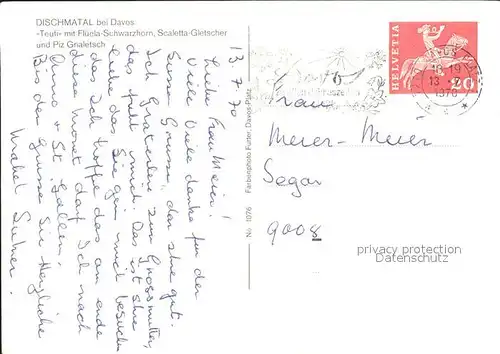 DISCHMATAL bei Davos
«Teufi» mit Flüela-Schwarzhorn, Scaletta-Gletscher
und Piz Grialetsch
13.7.70
Liebe Frau Meier!
Viele Viele danke fur der
Susse Grusse, der she gut.
Ich Grateriere zum Grossmutter,
das fult mich. Das ist Shre
liebe das Sie gern mich besuchen
das Ich hoffe das am ende
diese Monet darf Ich nach
Onno + St. Gallen.
Bis der Grusse Sie Herzliche
Mabel
No 1076 Farbenphoto Furter, Davos-Platz
HELVETIA
20
19
13
1970
Frau
Meier-Meier
Segar
9008
privacy protection
Datenschutz